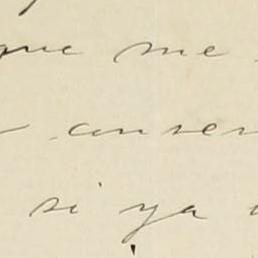 que me
conser
si ya